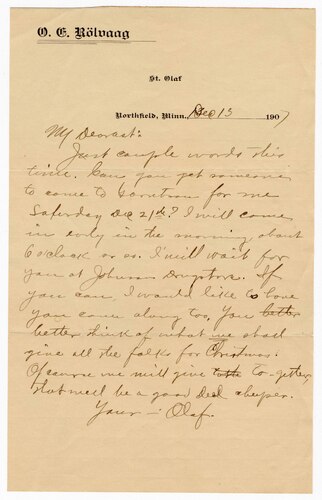 O. E. Rölvaag
St. Olaf
Northfield, Minn., Dec 13 1907
My Dearest:
Just couple words this
time. Can you get someone
to come to Canton for me
Saturday Dec 21st? I will come
in early in the morning about
6 o'clock or so. I'll wait for
you at Johnson Drugstore. If
you can I would like to have
you come along too. You better
better think of what we shall
give all the folks for Christmas.
Ofcourse we will give to-getter,
that will be a good deel cheeper.
Your — Olaf.